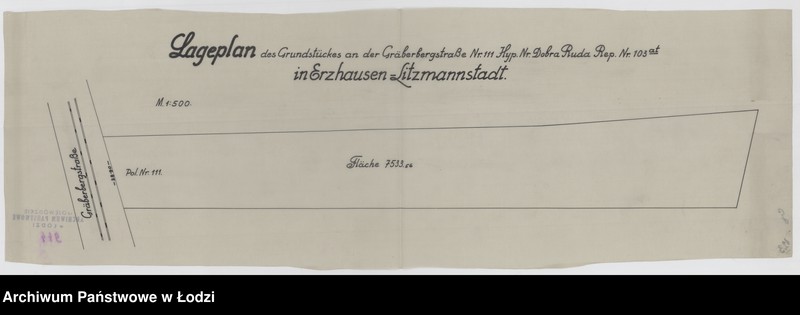 Lageplan des Grundstückes an der Gräberbergstraße Nr. 111 Hyp. Nr. Dobra Ruda Rep. Nr. 103 at
in Erzhausen=Litzmannstadt.
M. 1:500.
Gräberbergstraße
Pol. Nr. 111.
Fläche 7533.
Archiwum Państwowe w Łodzi